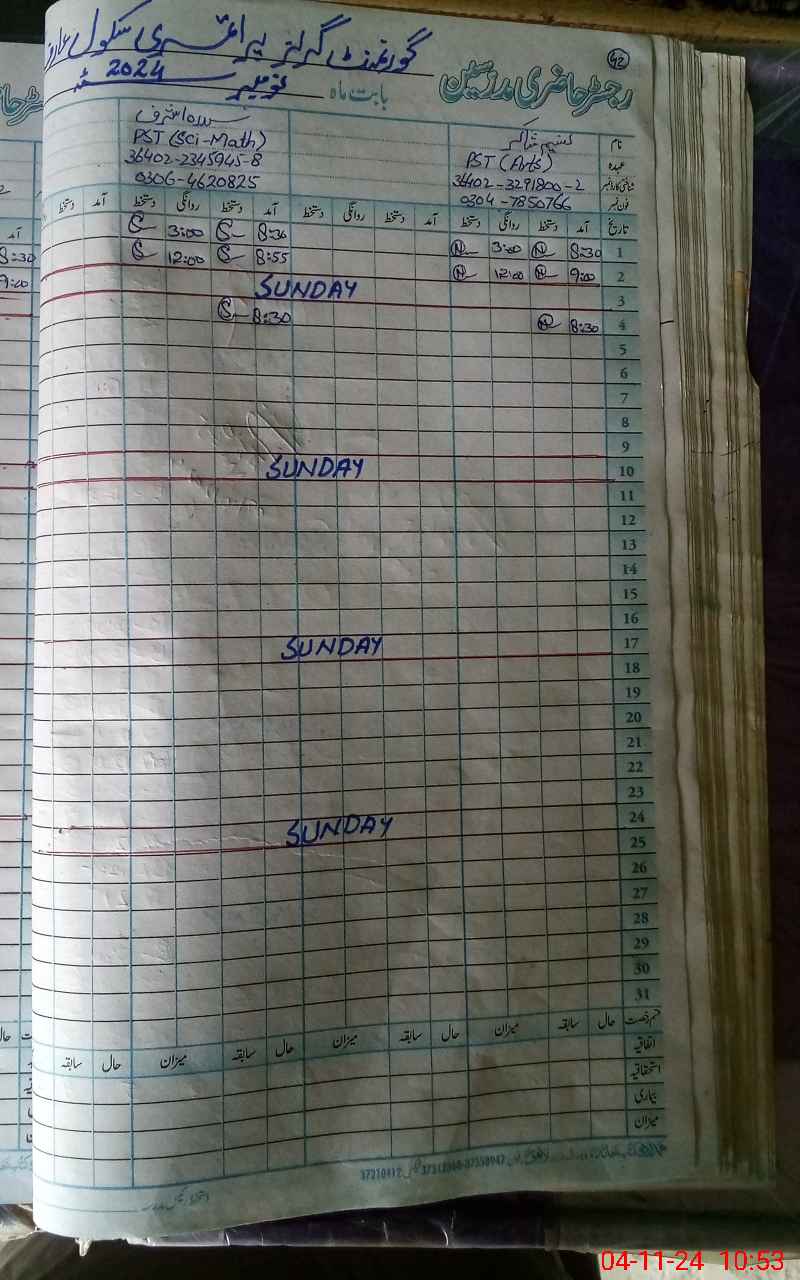 42
گورنمنٹ گرلز پرائمری سکول
رجسٹر حاضری مدرسین
بابت ماہ نومبر 2024
نام
تسنیم شاکر
سیدہ اشرف
عہدہ
PST (Arts)
PST (Sci-Math)
شناختی کارڈ نمبر
36402-3291800-2
36402-2345945-8
فون نمبر
0304-7850766
0306-4620825
تاریخ آمد دستخط روانگی دستخط آمد دستخط روانگی دستخط آمد دستخط روانگی دستخط آمد دستخط
1 8:30 3:00 8:30 3:00
2 9:00 12:00 8:55 12:00
3 SUNDAY
4 8:30 8:30
5
6
7
8
9
10 SUNDAY
11
12
13
14
15
16
17 SUNDAY
18
19
20
21
22
23
24 SUNDAY
25
26
27
28
29
30
31
قسم رخصت حال سابقہ میزان حال سابقہ میزان حال سابقہ میزان حال سابقہ
اتفاقیہ
استحقاقیہ
بیماری
میزان
8:30
9:00
04-11-24 10:53